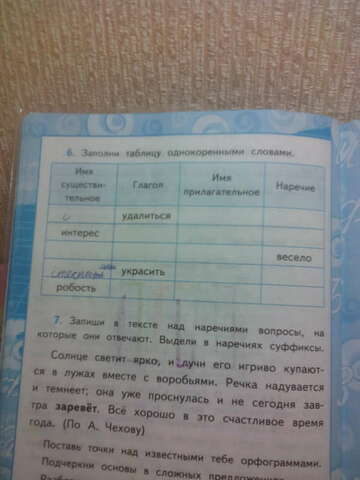 6. Заполни таблицу однокоренными словами.
Имя существи- тельное Глагол Имя прилагательное Наречие
удалиться
интерес
весело
украсить
робость
7. Запиши в тексте над наречиями вопросы, на
которые они отвечают. Выдели в наречиях суффиксы.
Солнце светит ярко, и лучи его игриво купают-
ся в лужах вместе с воробьями. Речка надувается
и темнеет; она уже проснулась и не сегодня зав-
тра заревёт. Всё хорошо в это счастливое время
года. (По А. Чехову)
Поставь точки над известными тебе орфограммами.
Подчеркни основы в сложных предложениях.